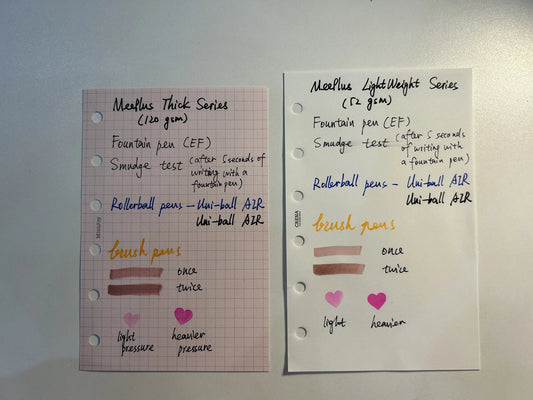 MeePlus Thick Series
(120 gsm)
Fountain pen (EF)
Smudge test (after 5 seconds of
writing with a
fountain pen)
Rollerball pens - Uni-ball AIR
Uni-ball AIR
brush pens
once
twice
light
pressure
heavier
pressure
MeePlus LightWeight Series
(52 gsm)
Fountain pen (EF)
Smudge test (after 5 seconds
of writing with
a fountain pen)
Rollerball pens - Uni-ball AIR
Uni-ball AIR
brush pens
once
twice
light
heavier